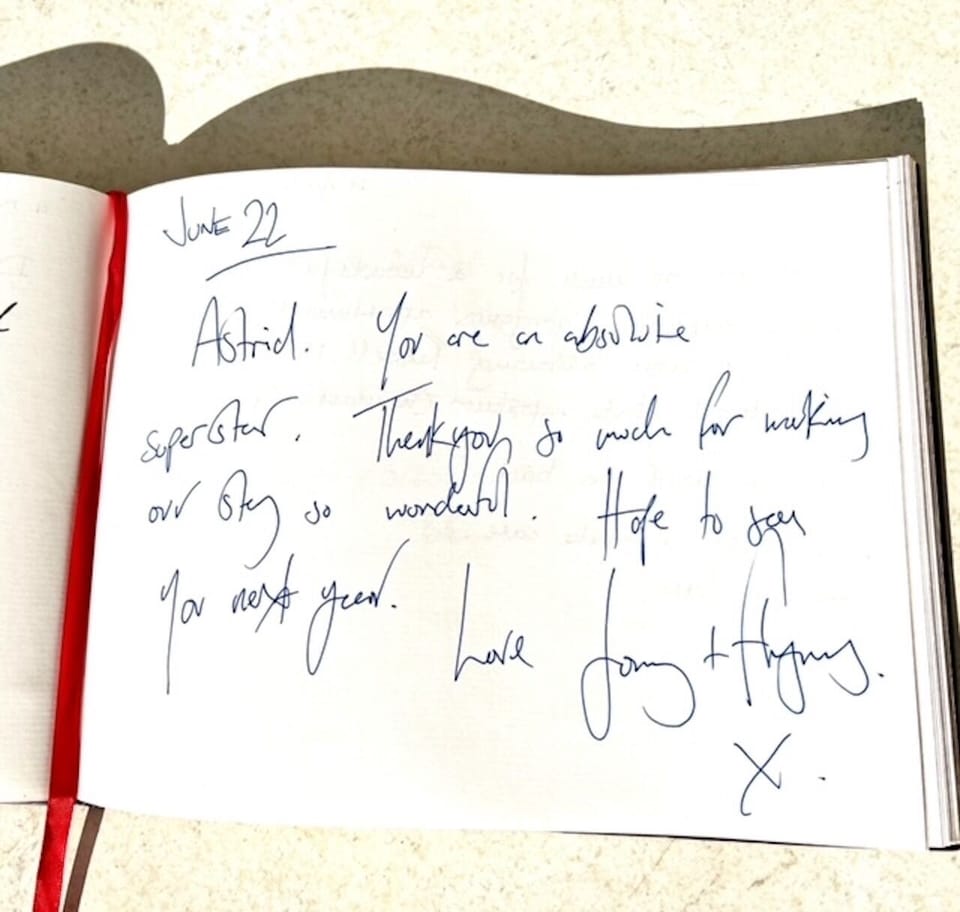 JUNE 22
Astrid. You are an absolute
superstar. Thank you so much for making
our stay so wonderful. Hope to see
you next year. Love Jonny +
X.